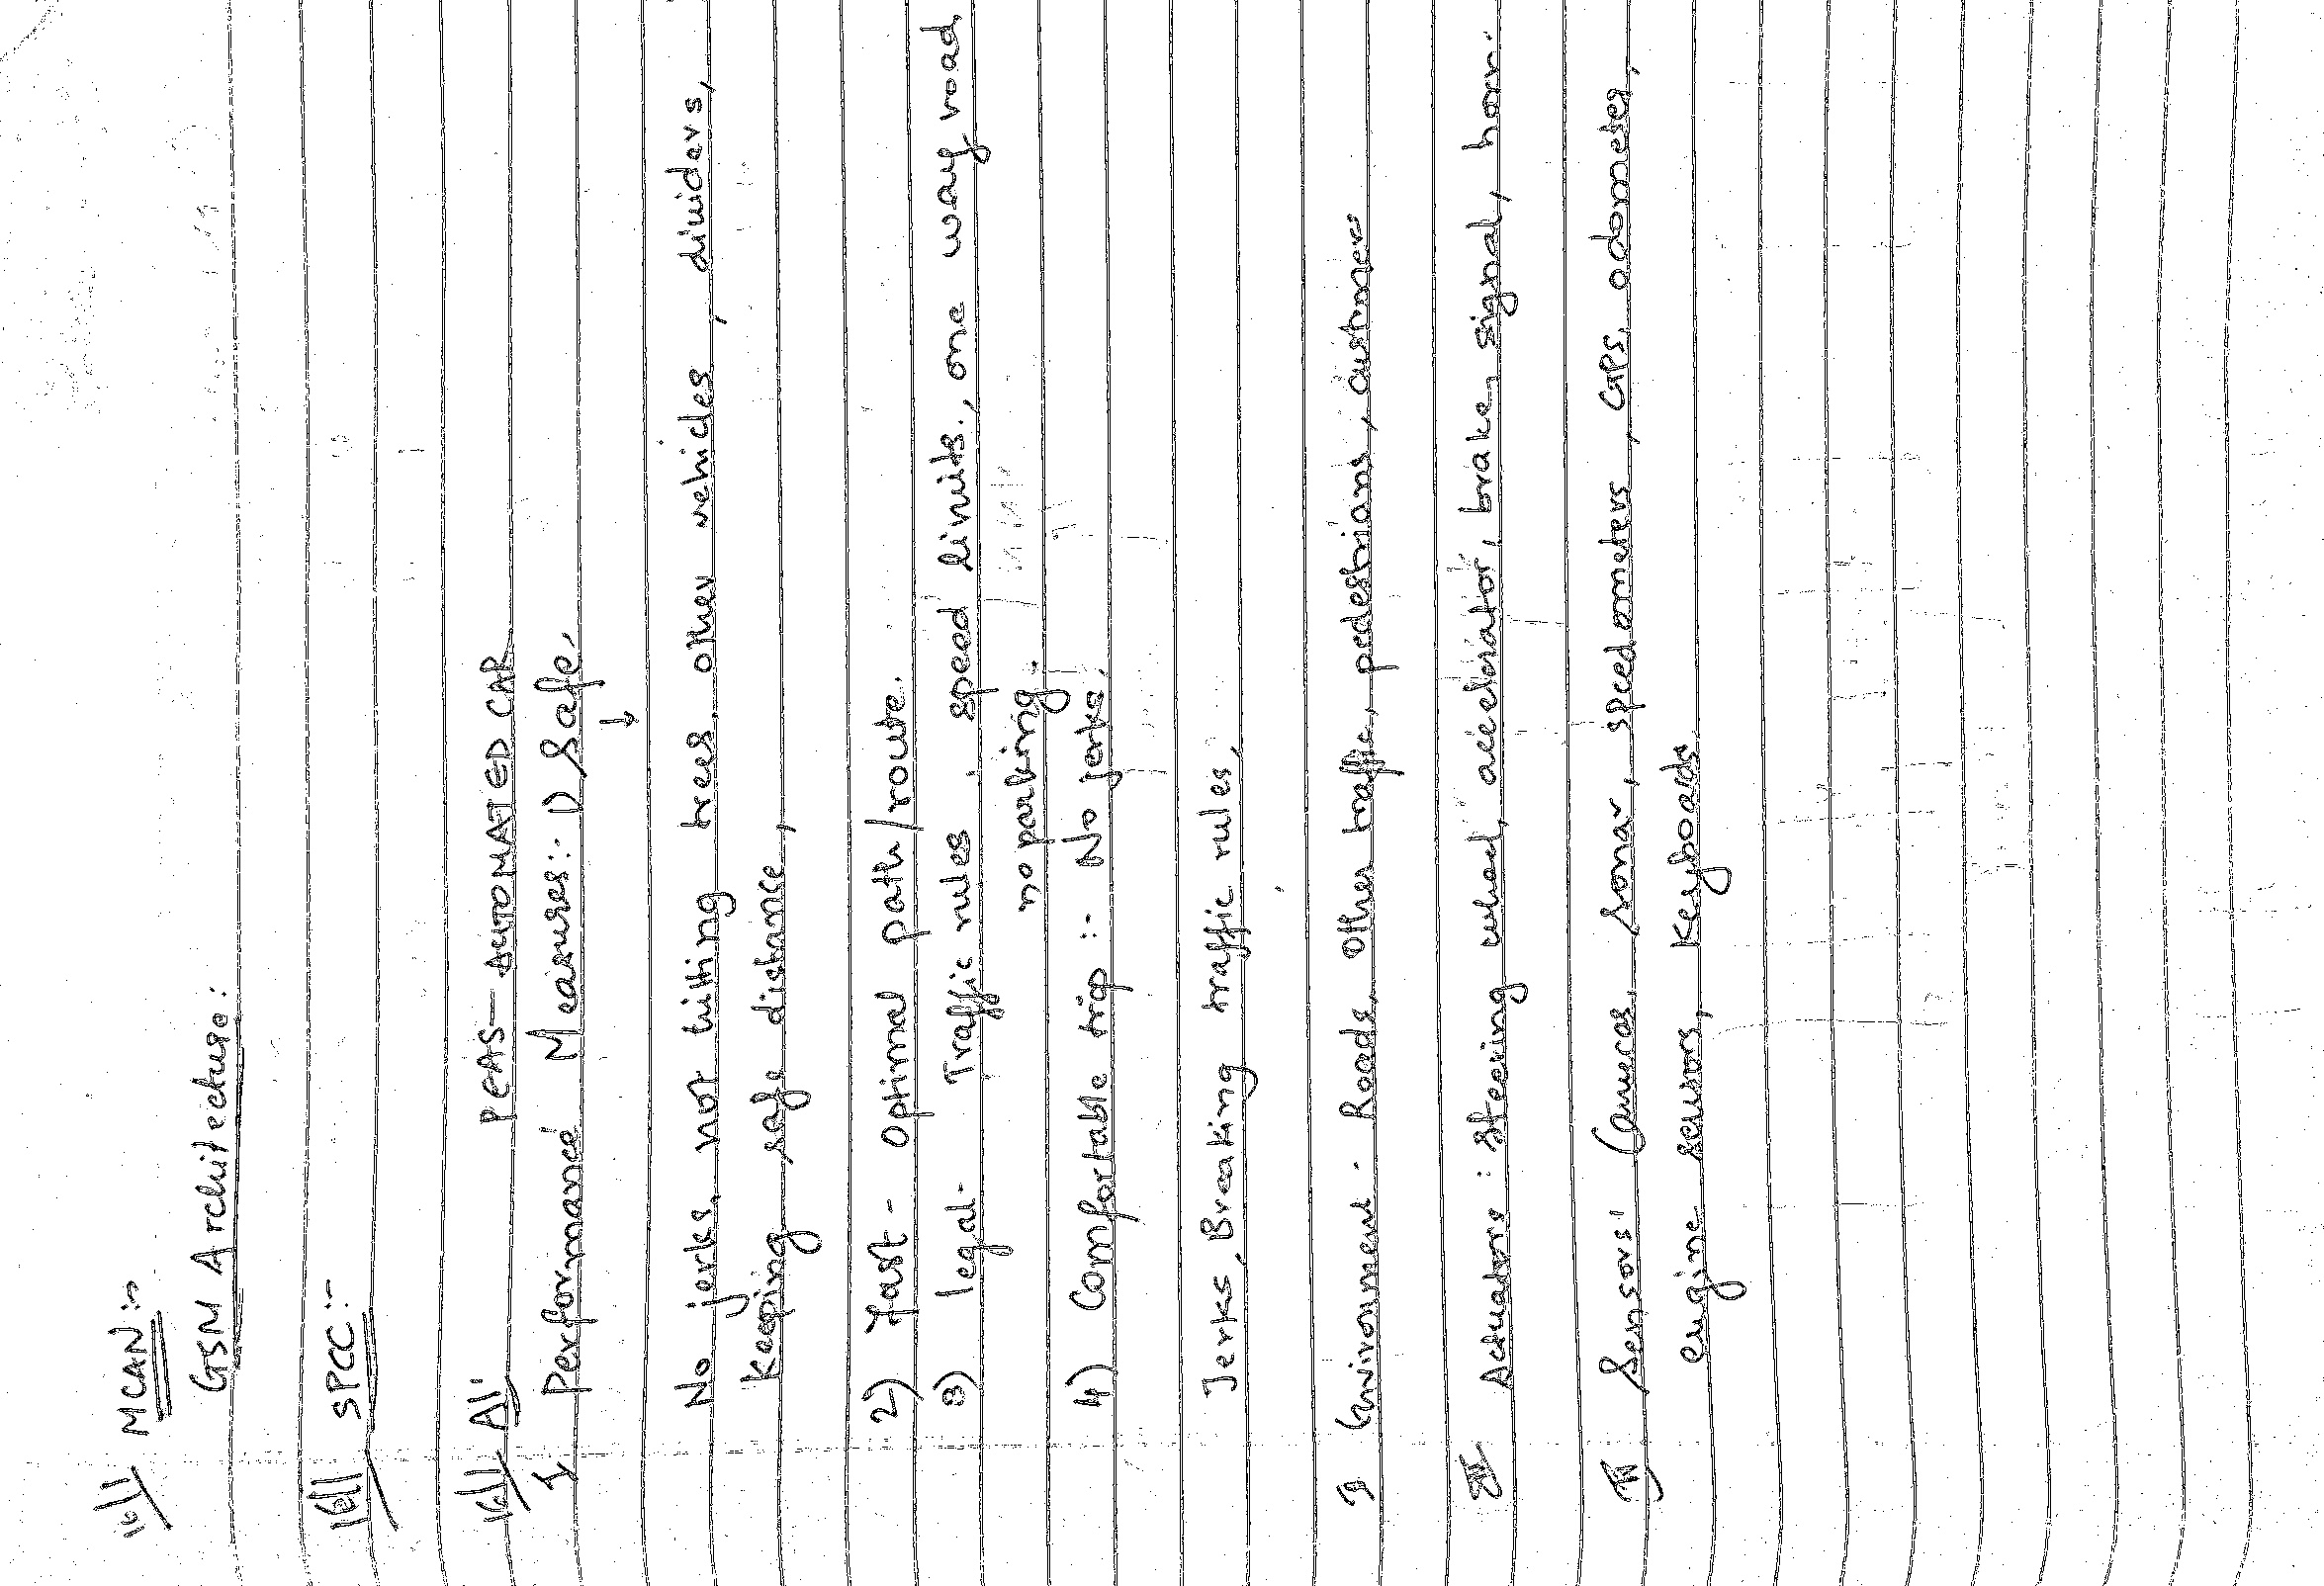 16/1 MCAN :-
GSM Architecture:
16/1 SPCC :-
16/1 AI:
PEAS - AUTOMATED CAR
I Performance Measures :- 1) Safe,
↓
No jerks, not hitting trees, other vehicles, dividers,
Keeping safe distance,
2) Fast - Optimal path/route.
3) legal - Traffic rules, speed limits, one way road,
no parking.
4) Comfortable trip :- No jerks.
Jerks, Breaking traffic rules,
Environment - Roads, Other traffic, pedestrians, customers
III Actuators : Steering wheel, accelerator, brake, signal, horn.
IV Sensors: Cameras, sonar, speedometers, GPS, odometer,
engine sensors, Keyboards